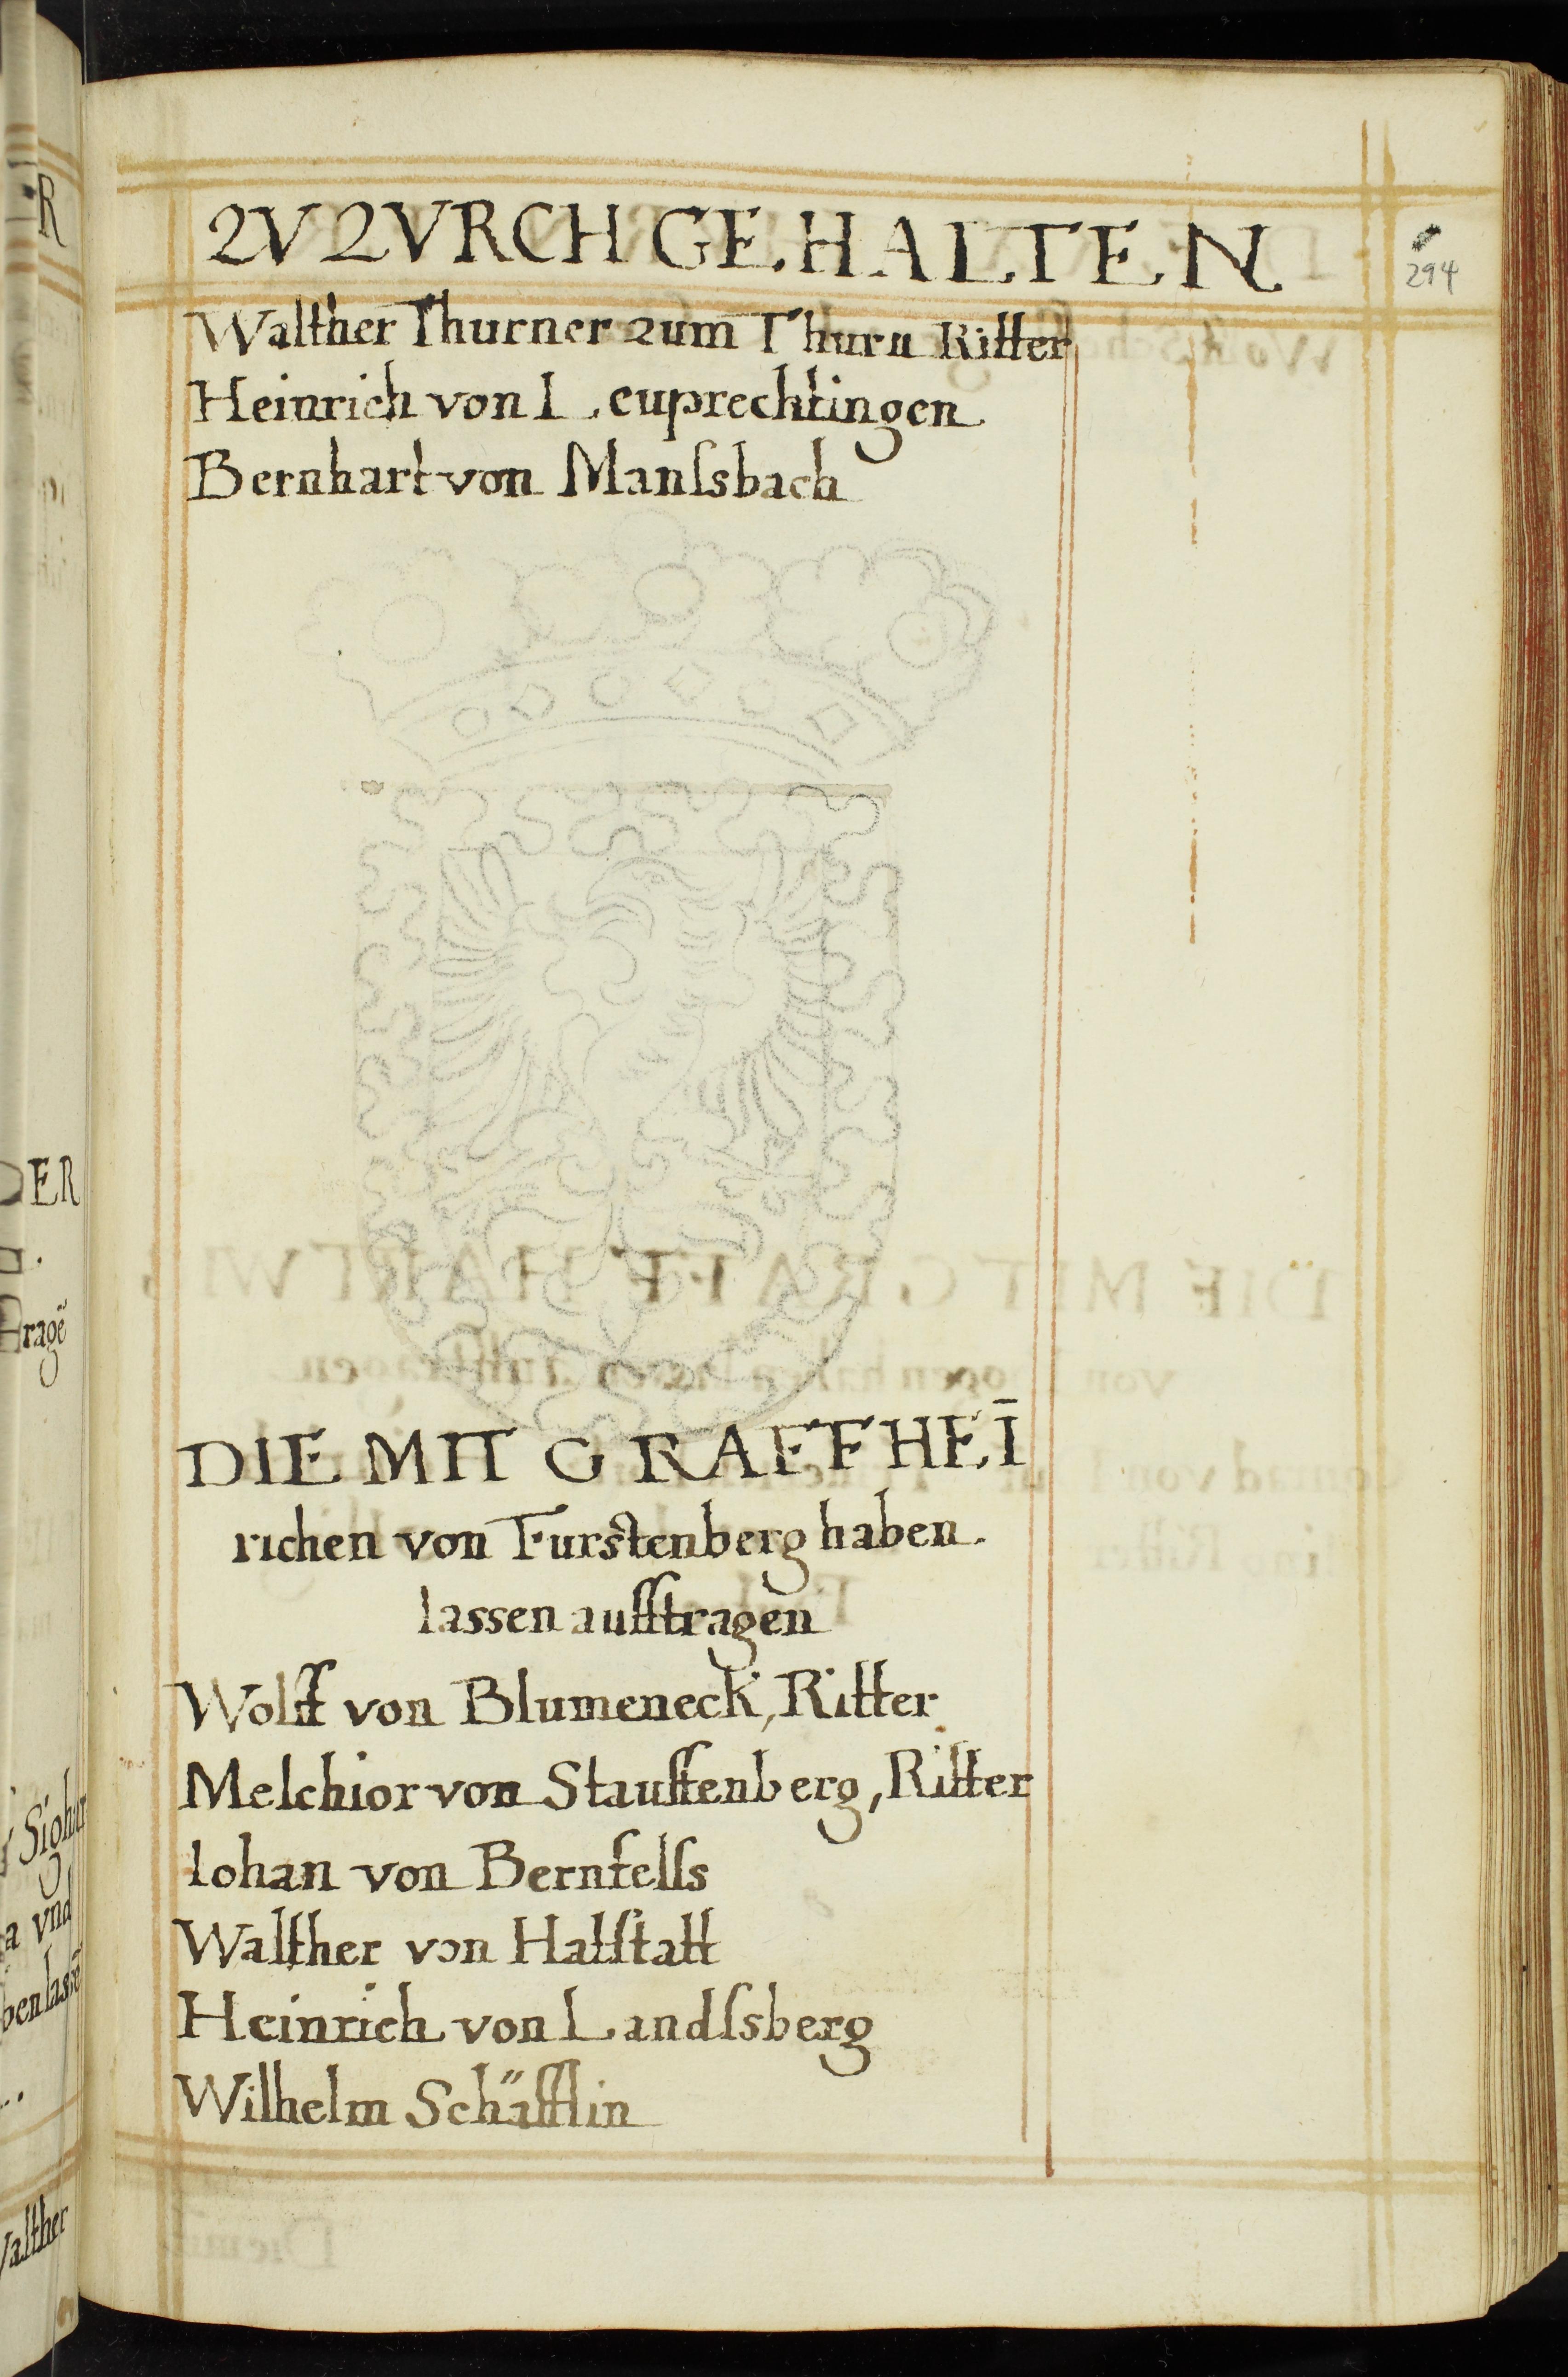 ZV ZVRCH GEHALTEN
294
Walther Thurner zum Thurn Ritter
Heinrich von Leuprechtingen
Bernhart von Manſsbach
DIE MIT GRAFF HEĪ
richen von Furstenberg haben.
lassen aufftragen
Wolff von Blumeneck, Ritter
Melchior von Stauffenberg, Ritter
Iohan von Bernfelſs
Walther von Hatſtatt
Heinrich von Landſsberg
Wilhelm Schäfflin